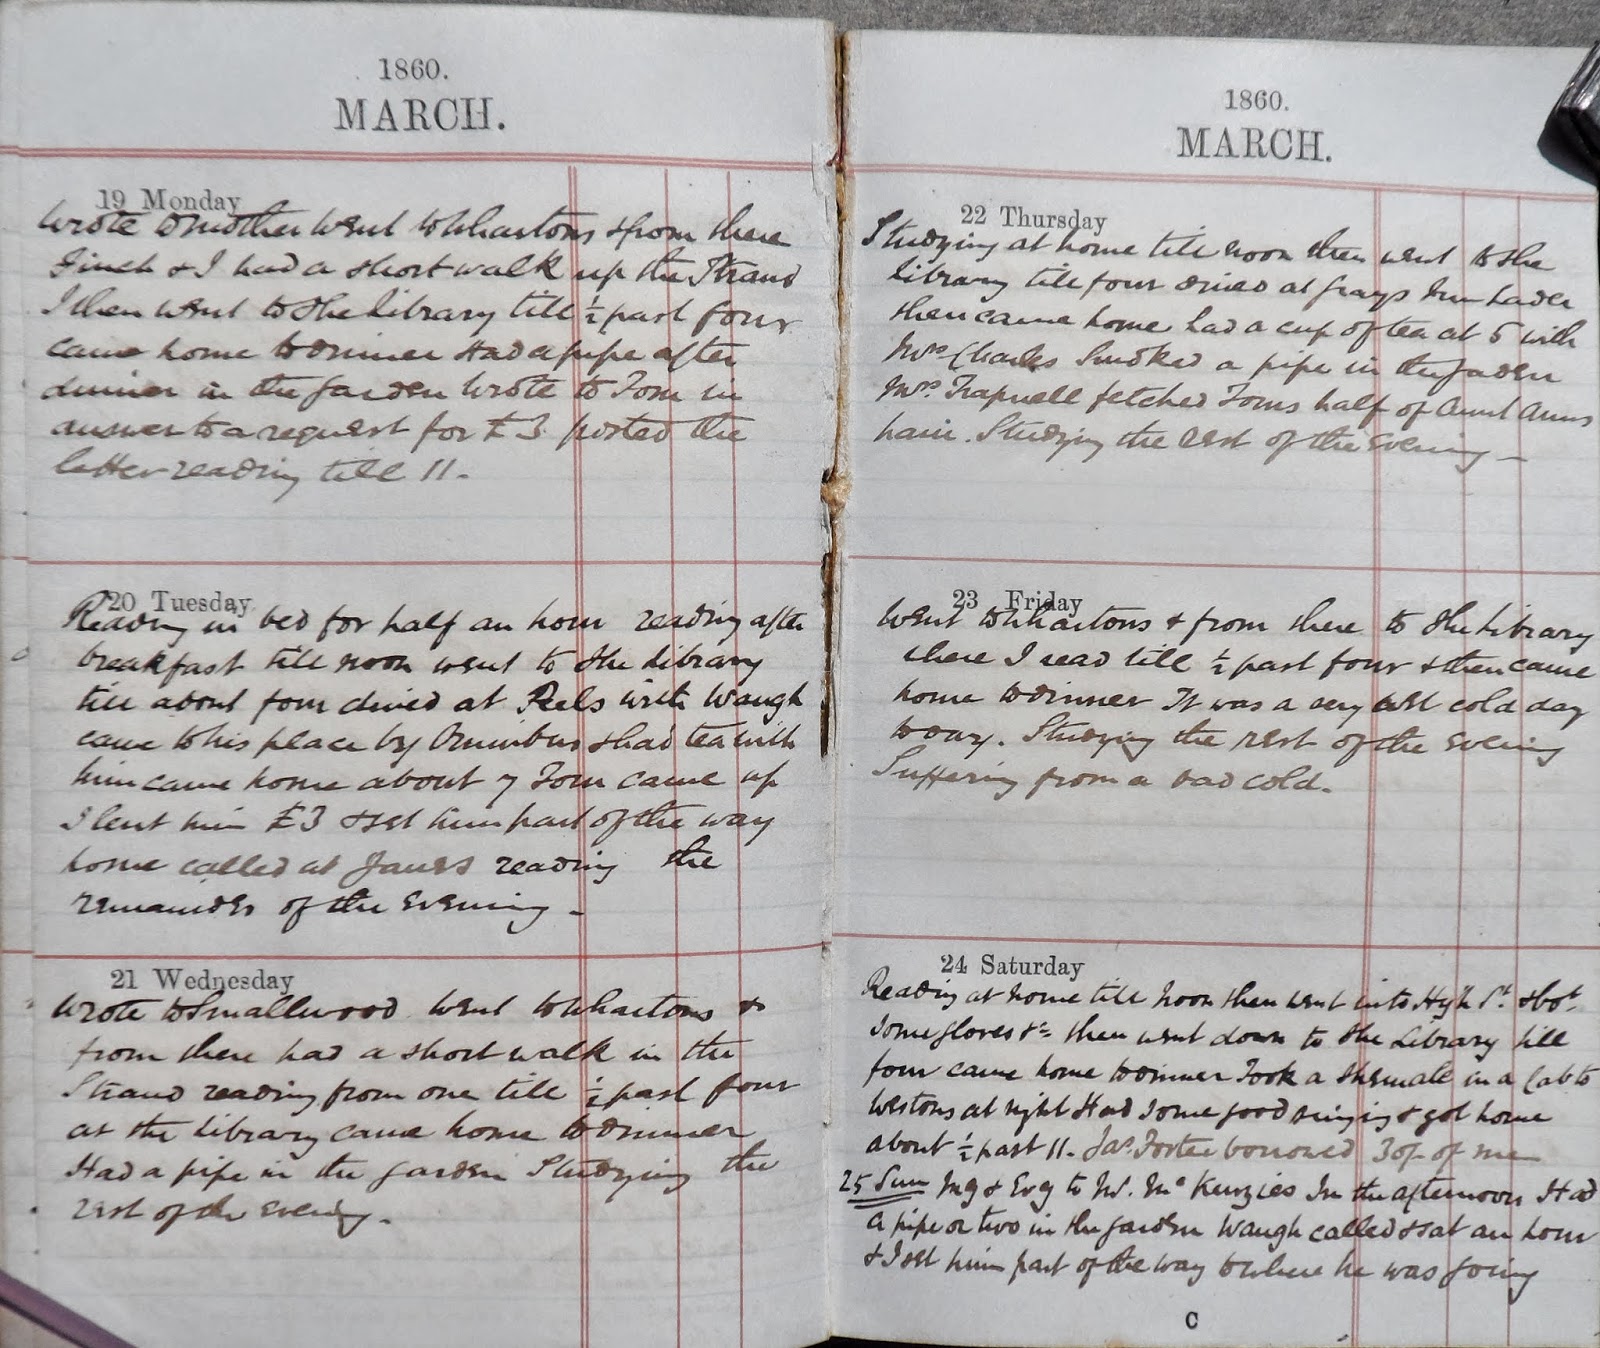 1860.
MARCH.
19 Monday
Wrote to Mother went to Whartons & from there
Finch & I had a short walk up the Strand
I then went to the Library till ½ past four
came home to dinner Had a pipe after
dinner in the garden Wrote to Tom in
answer to a request for £3 posted the
letter reading till 11.
20 Tuesday
Reading in bed for half an hour reading after
breakfast till noon went to the Library
till about four dined at Peels with Waugh
came to his place by Omnibus & had tea with
him came home about 7 Tom came up
I lent him £3 & set him part of the way
home called at Janes reading the
remainder of the evening -
21 Wednesday
Wrote to Smallwood went to Whartons &
from there had a short walk in the
Strand reading from one till ½ past four
at the Library came home to dinner
Had a pipe in the garden Studying the
rest of the evening.-
1860.
MARCH.
22 Thursday
Studying at home till noon then went to the
Library till four dined at Grays Inn Lane
then came home had a cup of tea at 5 with
Mrs. Charles Smoked a pipe in the garden
Mrs. Trapnell fetched Toms half of Aunt Anns
hair. Studying the rest of the evening -
23 Friday
Went to Whartons & from there to the Library
where I read till ½ past four & then came
home to dinner It was a very wet cold day
today. Studying the rest of the evening
Suffering from a bad cold.
24 Saturday
Reading at home till noon then went into High St. & bot.
some gloves &c then went down to the Library till
four came home to dinner Took a in a Cab to
Westons at night Had some good singing & got home
about ½ past 11. Jas. Foster borrowed 30/- of me
25 Sun Mg & Evg to Mr. McKenzies In the afternoon Had
a pipe or two in the garden Waugh called & sat an hour
& I set him part of the way to where he was going
C